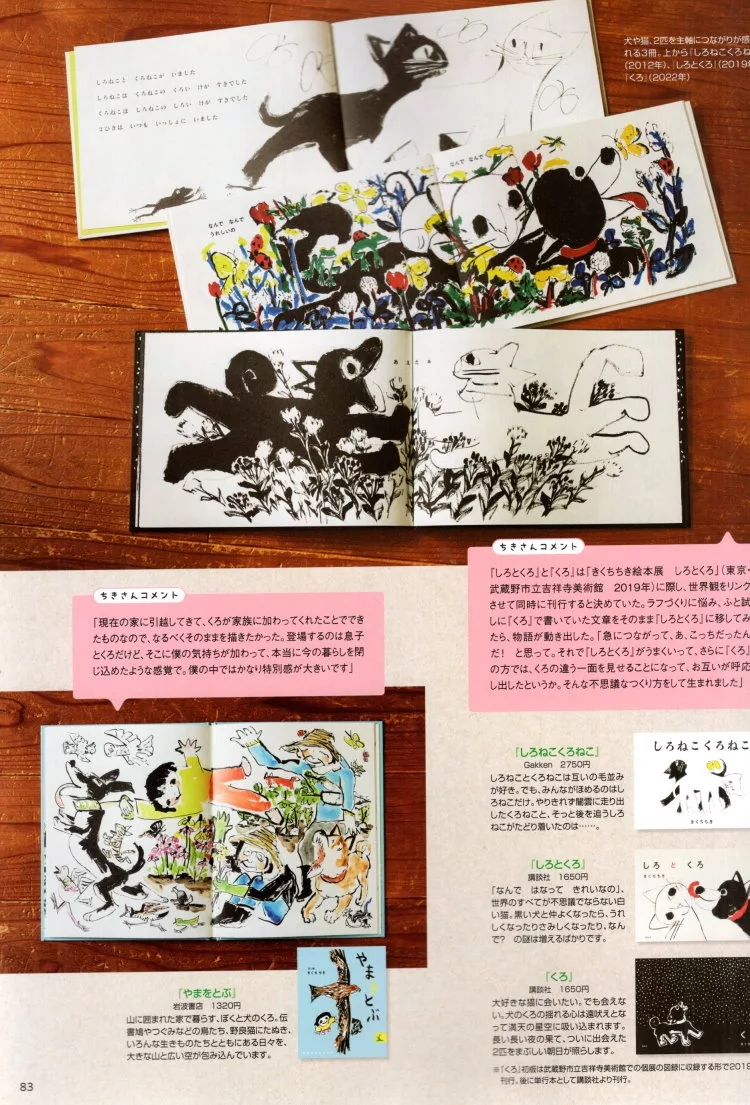 犬や猫、2匹を主軸につながりが感
れる3冊。上から『しろねこくろね
(2012年)、『しろとくろ』(2019年
『くろ』(2022年)
しろねこと くろねこが いました
しろねこは くろねこの くろい けが すきでした
くろねこは しろねこの しろい けが すきでした
2ひきは いつも いっしょに いました
なんで なんで
なんで なんで
うれしいの
あえたぁ
ちきさんコメント
『しろとくろ』と『くろ』は「きくちちき絵本展 しろとくろ」(東京・
武蔵野市立吉祥寺美術館 2019年)に際し、世界観をリンク
させて同時に刊行すると決めていた。ラフづくりに悩み、ふと試
しに『くろ』で書いていた文章をそのまま『しろとくろ』に移してみ
たら、物語が動き出した。「急につながって、あ、こっちだったん
だ! と思って。それで『しろとくろ』がうまくいって、さらに『くろ』
の方では、くろの違う一面を見せることになって、お互いが呼応
し出したというか。そんな不思議なつくり方をして生まれました」
ちきさんコメント
「現在の家に引越してきて、くろが家族に加わってくれたことでで
きたものなので、なるべくそのままを描きたかった。登場するのは息子
とくろだけど、そこに僕の気持ちが加わって、本当に今の暮らしを閉
じ込めたような感覚で。僕の中ではかなり特別感が大きいです」
『しろねこくろねこ』
Gakken 2750円
しろねことくろねこは互いの毛並み
が好き。でも、みんながほめるのはし
ろねこだけ。やりきれず闇雲に走り出
したくろねこと、そっと後を追うしろ
ねこがたどり着いたのは……。
しろねこくろねこ
きくちちき
『しろとくろ』
講談社 1650円
「なんで はなって きれいなの」、
世界のすべてが不思議でならない白
い猫。黒い犬と仲よくなったら、うれ
しくなったりさみしくなったり、なん
で? の謎は増えるばかりです。
しろ と くろ
きくちちき
『くろ』
講談社 1650円
大好きな猫に会いたい。でも会えな
い。犬のくろの揺れる心は遠吠えとな
って満天の星空に吸い込まれます。
長い長い夜の果て、ついに出会えた
2匹をまぶしい朝日が照らします。
く
※『くろ』初版は武蔵野市立吉祥寺美術館での個展の図録に収録する形で2019
刊行。後に単行本として講談社より刊行。
『やまをとぶ』
岩波書店 1320円
山に囲まれた家で暮らす、ぼくと犬のくろ。伝
書鳩やつぐみなどの鳥たち、野良猫にたぬき、
いろんな生きものたちとともにある日々を、
大きな山と広い空が包み込んでいます。
やまをとぶ
きくちちき
83